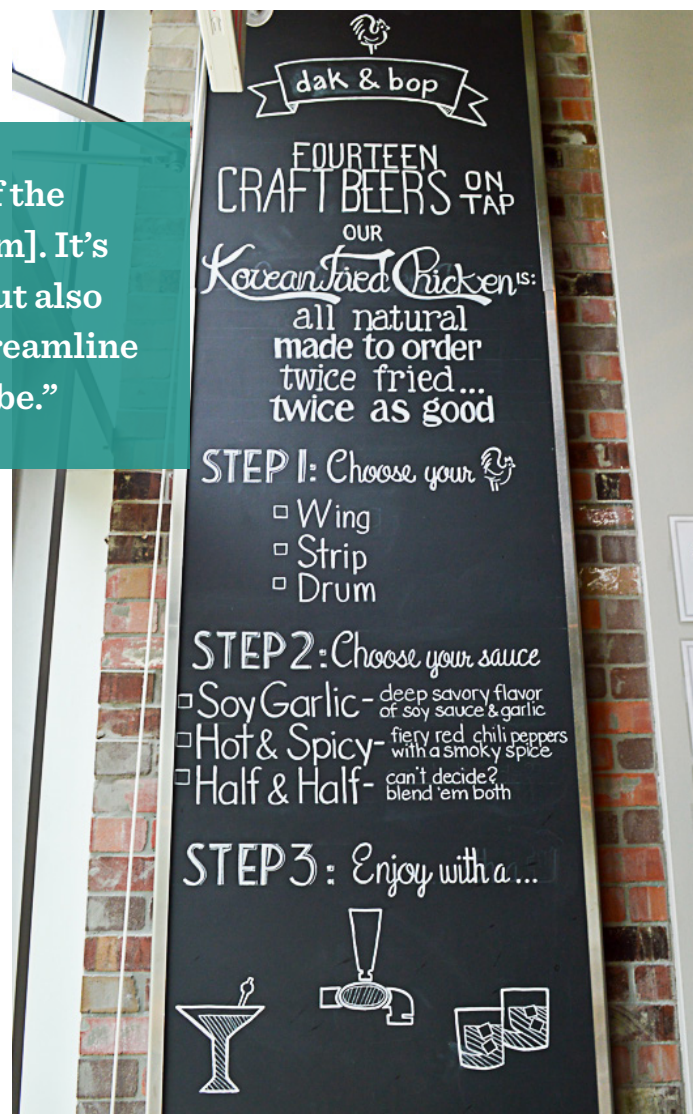 f the
m]. It's
ut also
reamline
be.”
dak & bop
FOURTEEN
CRAFT BEERS ON TAP
OUR
Korean Fried Chicken IS:
all natural
made to order
twice fried...
twice as good
STEP 1: Choose your
Wing
Strip
Drum
STEP 2: Choose your sauce
Soy Garlic - deep savory flavor
of soy sauce & garlic
Hot & Spicy - fiery red chili peppers
with a smoky spice
Half & Half - can't decide?
blend 'em both
STEP 3: Enjoy with a...